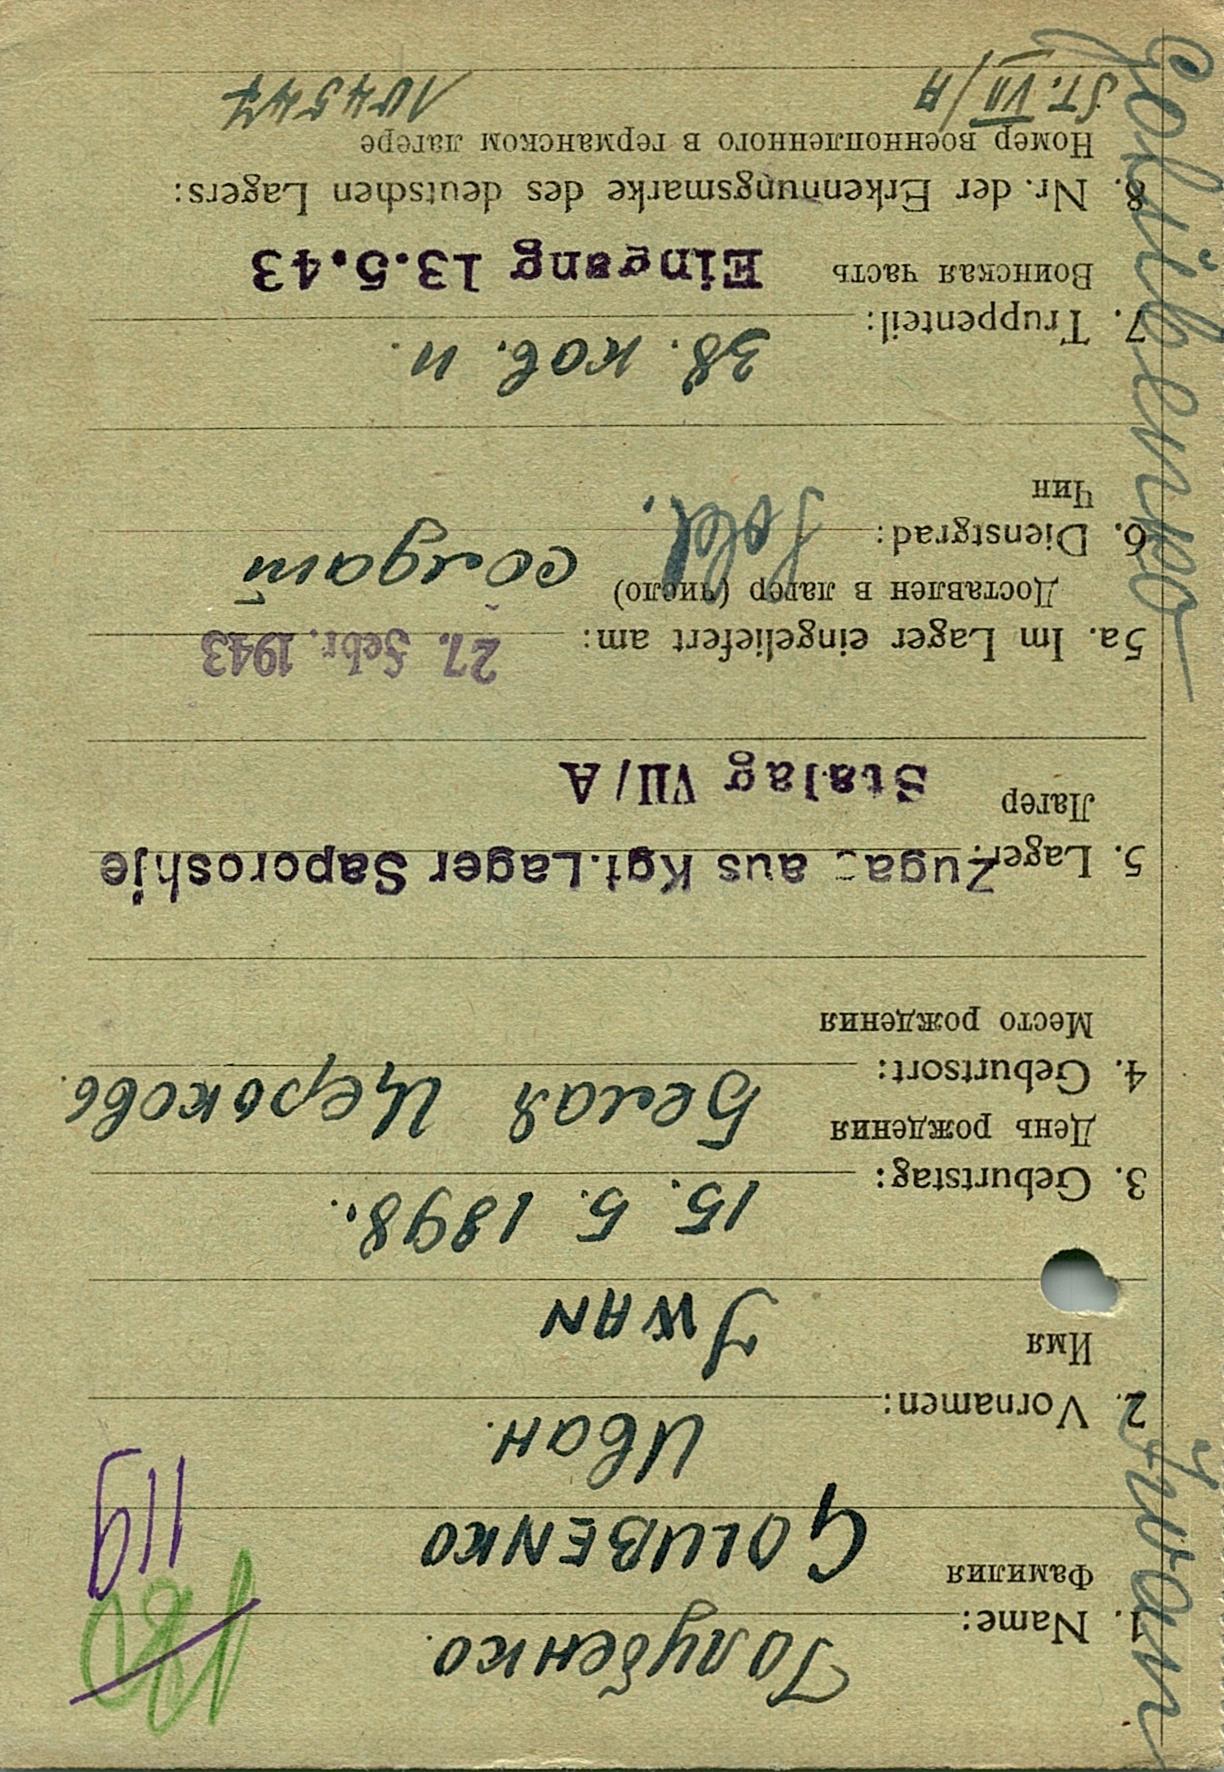 Голубенко.
1. Name:
Фамилия
GOLUBENKO
Иван.
2. Vornamen:
Имя
IWAN
15. 5. 1898.
3. Geburtstag:
День рождения
Белая Церьковь.
4. Geburtsort:
Место рождения
5. Lager: Zuga. aus Kgt.Lager Saporoshje
Лагер
Stalag VII/A
5a. Im Lager eingeliefert am: 27. Febr. 1943
Доставлен в лагер (число)
солдат
6. Dienstgrad: Sold.
Чин
38. кав. п.
7. Truppenteil:
Воинская часть
Eingang 13.5.43
8. Nr. der Erkennungsmarke des deutschen Lagers:
Номер военнопленного в германском лагере
ST. VII/A 104547
Golubenko
Iwan
180
119